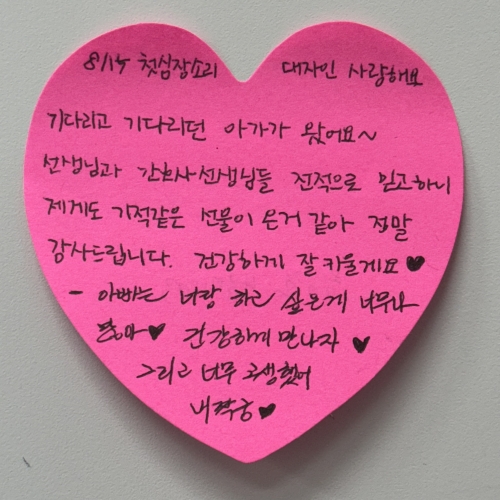 8/14 첫심장소리 대자인 사랑해요
기다리고 기다리던 아가가 왔어요~
선생님과 간호사선생님들 전적으로 믿고하니
제게도 기적같은 선물이 온거 같아 정말
감사드립니다. 건강하게 잘키울게요♥
- 아빠는 너랑 하고 싶은게 너무나
많아♥ 건강하게 만나자 ♥
그리고 너무 고생했어
내짝궁♥